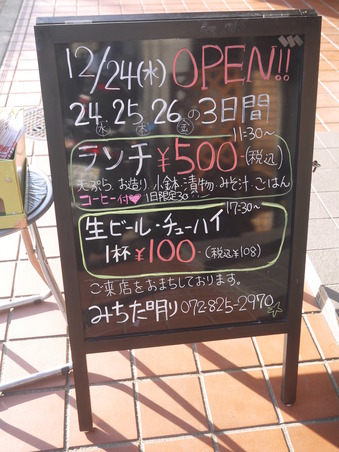 12/24(水) OPEN!!
24. 25. 26の3日間
水 木 金
11:30~
ランチ ¥500-(税込)
天ぷら.お造り.小鉢.漬物.みそ汁.ごはん
コーヒー付♥ 1日限定30
17:30~
生ビール・チューハイ
1杯 ¥100-(税込¥108)
ご来店をおまちしております。
みちた明り 072-825-2970